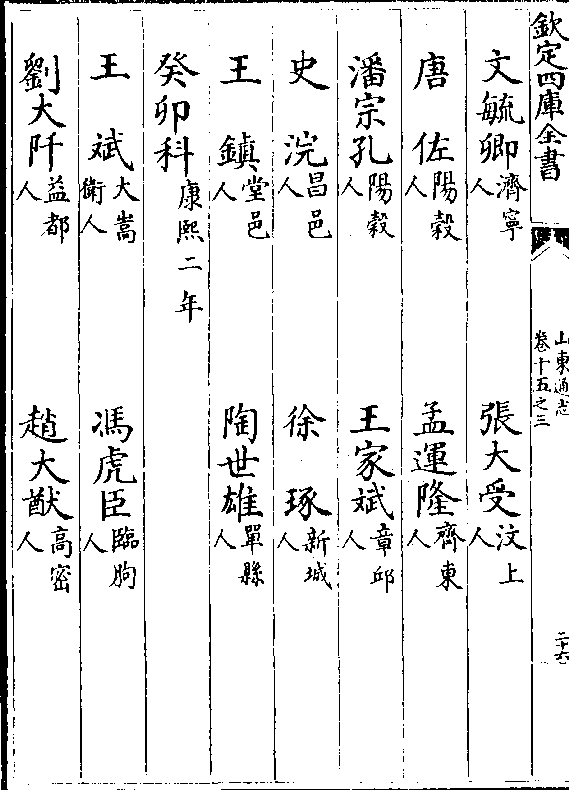 欽定四庫全書
山東通志
卷十五之三
二十六
文毓卿濟寧人　張大受汶上人
唐佐陽穀人　孟運隆齊東人
潘宗孔陽穀人　王家斌章邱人
史浣昌邑人　徐琢新城人
王鎮堂邑人　陶世雄單縣人
癸卯科康熙二年
王斌大嵩衛人　馮虎臣臨朐人
劉大阡益都人　趙大猷高密人